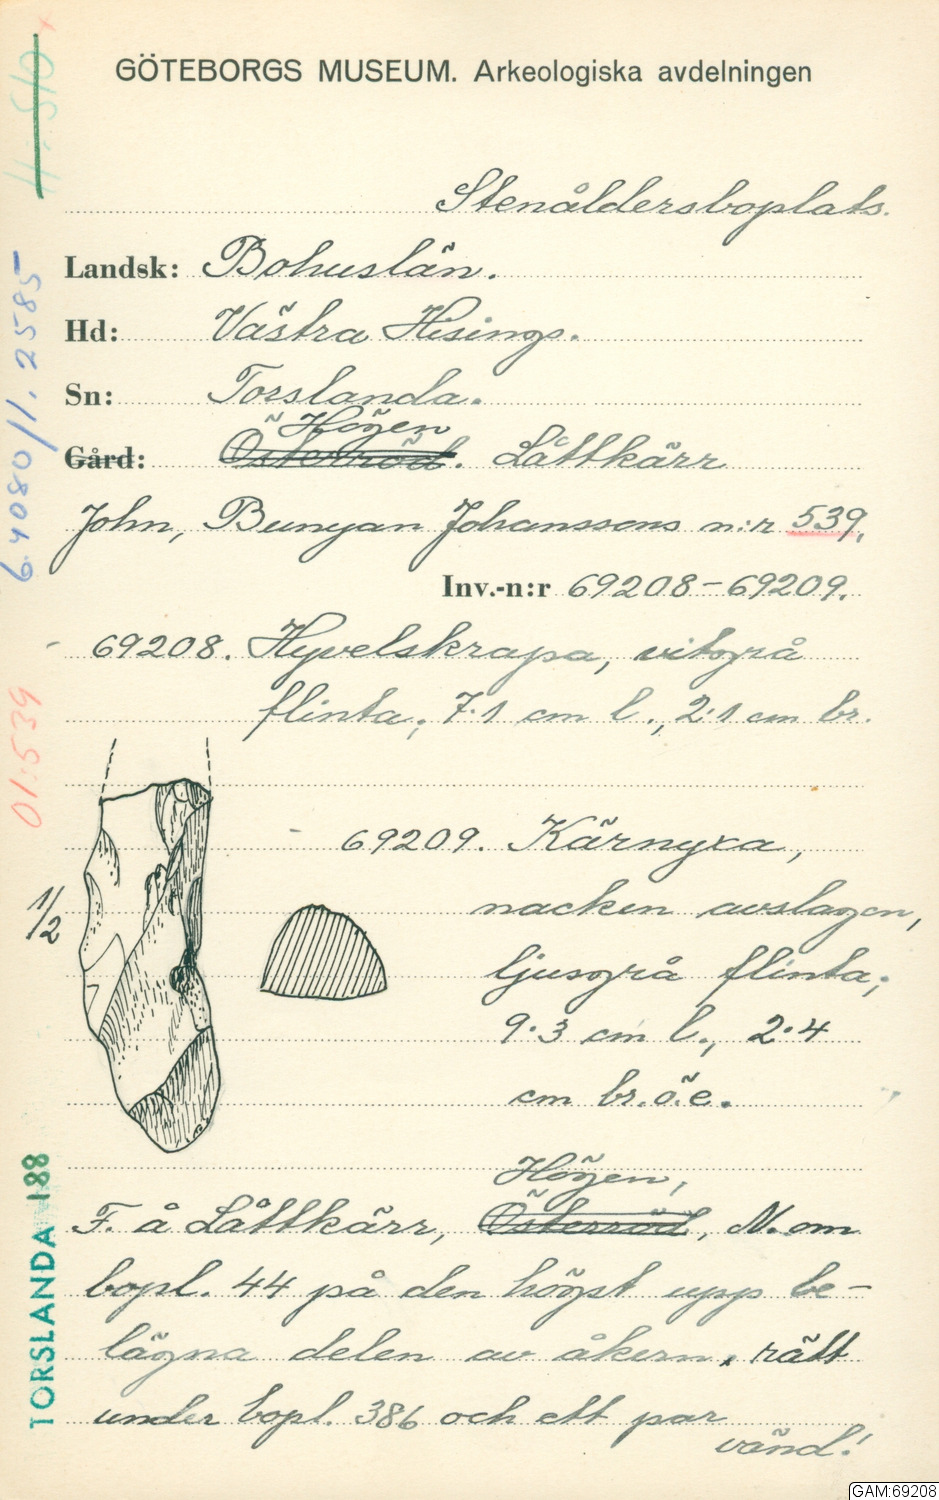 GÖTEBORGS MUSEUM. Arkeologiska avdelningen
Stenåldersboplats.
Landsk: Bohuslän.
Hd: Västra Hisings.
Sn: Torslanda.
Högen
Gård: Österröd. Låttkärr
John, Bunyan Johanssons n:r 539.
Inv.-n:r 69208-69209.
69208. Hyvelskrapa, vitgrå
flinta; 7.1 cm l., 2.1 cm br.
69209. Kärnyxa,
nacken avslagen,
ljusgrå flinta;
9.3 cm l., 2.4
cm br. ö.e.
1/2
Högen,
F. å Låttkärr, Österröd, N. om
bopl. 44 på den högst upp be-
lägna delen av åkern, rätt
under bopl. 386 och ett par
vänd!
64080/1. 2585
01:539
TORSLANDA 188
GAM:69208